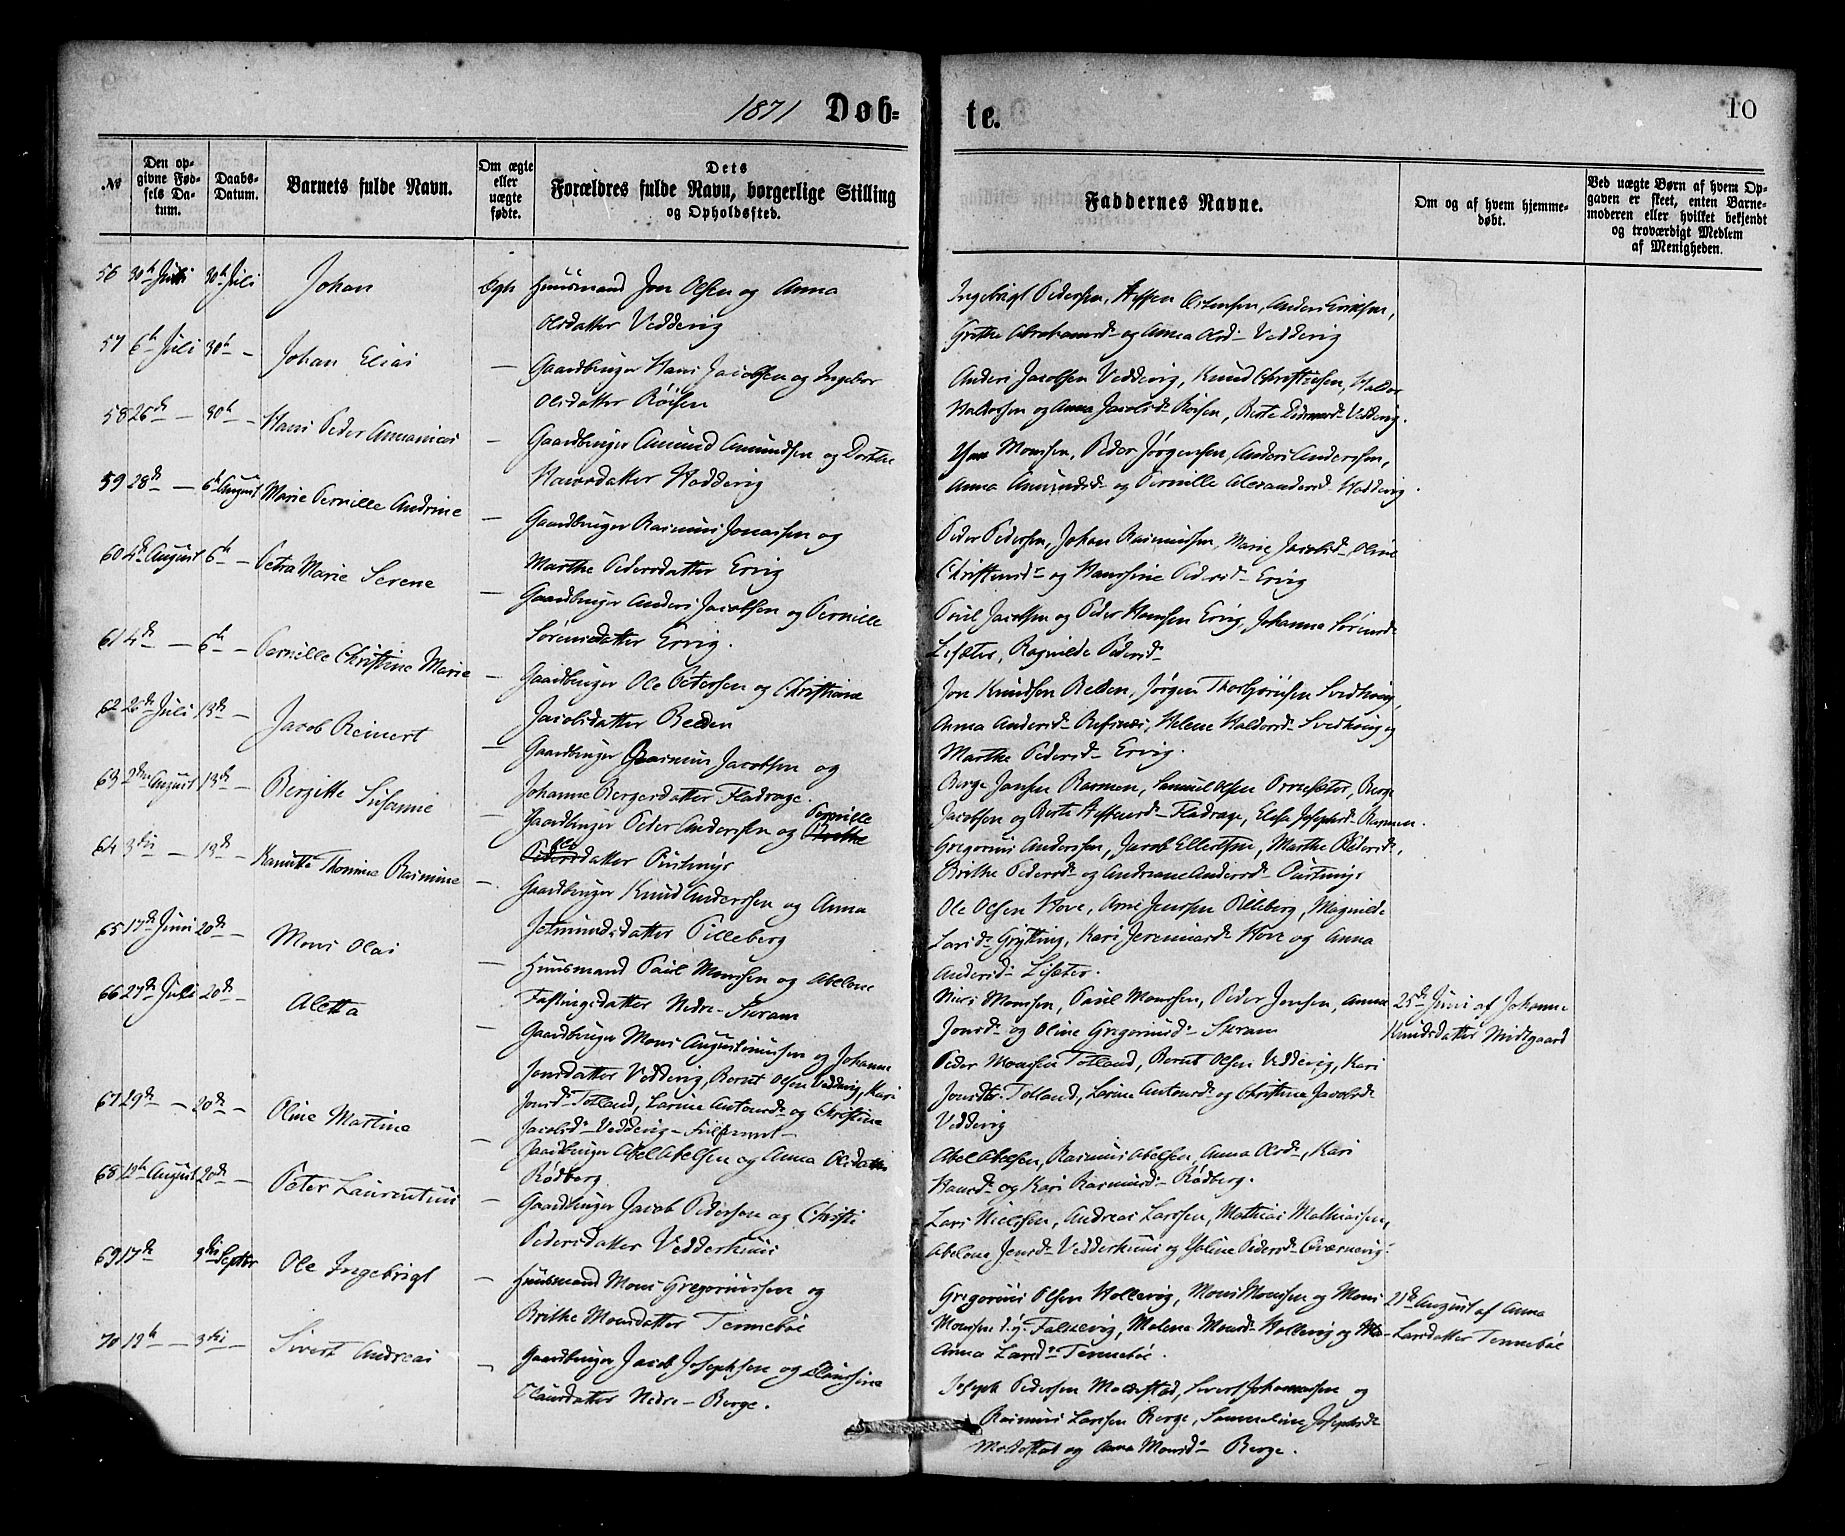 1871 Døb=
te.
10
№
Den op-
givne Fød-
sels Da-
tum.
Daabs-
Datum.
Barnets fulde Navn.
Om ægte
eller
uægte
fødte.
Dets
Forældres fulde Navn, borgerlige Stilling
og Opholdssted.
Faddernes Navne.
Om og af hvem hjemme-
døbt.
Ved uægte Børn af hvem Op-
gaven er skeet, enten Barne-
moderen eller hvilket bekjendt
og troværdigt Medlem
af Menigheden.
56 30te Juli 30te Juli Johan Ægte Huusmand Jon Olsen og Anna
Olsdatter Veddevig
Ingebrigt Pedersen, Steffen Anders Eriksen,
Grethe Abrahamsd. og Anna Olsd. Veddevig
57 6te Juli 30te — Johan Elias — Gaardbruger Hans Jacobsen og Ingebor
Olsdatter Röisen
Anders Jacobsen Veddevig, Knud Christensen, Haldor
Haldorsen og Anna Jacobsd. Röisen, Berte Veddevig.
58 26de — 30te — Hans Peder Amanias — Gaardbruger Amund Amundsen og Dorthe
Hansdatter Haddevig
Monssen, Peder Jørgensen, Anders Anderssen,
Anna Amundsd. og Pernille Alexandersd. Haddevig.
59 28de — 6te August Marie Pernille Andrine — Gaardbruger Rasmus Jonassen og
Marthe Pedersdatter Ervig
Peder Pedersen, Johan Rasmussen, Marie Jacobsd. Oline
Christensd. og Hanssine Pedersd. Ervig
60 4de August 6te — Petra Marie Serene — Gaardbruger Anders Jacobsen og Pernille
Sørensdatter Ervig.
Poul Jacobsen og Peder Hanssen Ervig, Johanna Sørensd.
Lisæter, Ragnilde Pedersd.
61 4de — 6te — Pernille Christine Marie — Gaardbruger Ole Petersen og Christiane
Jacobsdatter Relden
Jon Knudsen Relden, Jørgen Thorbjørnsen Svedhoug,
Anna Andersd. Refsnæs, Helene Haldorsd. Svedhoug og
Marthe Pedersd. Ervig.
62 Juli 13de — Jacob Reinert — Gaardbruger Rasmus Jacobsen og
Johanne Bergesdatter Fladrage.
Berge Jansen Rasmen, Samuel Olsen Ørnesæter, Berge
Jacobsen og Berte Steffensd. Fladrage, Elesa Josephsd. Rasmen.
63 2den August 13de — Bergitte Susanne — Gaardbruger Peder Anderssen og Pernille
Olsdatter Pustmyr
Gregorius Anderssen, Jacob Ellertsen, Marthe Pedersd.,
Brithe Pedersd. og Andreane Andersd. Pustmyr
64 3die — 13de — Kanutte Thomine Rasmine — Gaardbruger Knud Anderssen og Anna
Jetmundsdatter Pilleberg
Ole Olsen Hove, Arne Jenssen Pilleberg, Magnilde
Larsd. Grytting, Kari Jeremiasd. Hove og Anna
Andersd. Lisæter.
65 17de Juni 20de — Mons Olai — Huusmand Paul Monssen og Abelone
Fastingsdatter Nedre-Svram
Nils Monssen, Paul Monssen, Peder Jensen, Anna
Jonsd. og Oline Gregoriusd. Svram
25de Juni af Johanne
Knudsdatter Midtgaard
66 27de Juli 20de — Aletta — Gaardbruger Mons Augustinussen og Johanne
Jonsdatter Veddevig, Bernt Olsen Veddevig, Kari
Jonsd. Totland, Larine Antonsd. og Christine
Jacobsd. Veddevig
Peder Monssen Totland, Bernt Olsen Veddevig, Kari
Jonsdtr. Totland, Larine Antonsd. og Christine Jacobsd.
Veddevig
67 29de — 20de — Oline Martine — Gaardbruger Abel Abelsen og Anna Olsdatter
Rødberg
Abel Abelsen, Rasmus Abelsen, Anna Olsd., Kari
Hansd. og Kari Rasmusd. Rødberg.
68 12te August 20de — Peter Laurentius — Gaardbruger Jacob Pedersen og Christi
Pedersdatter Vedderhuus
Lars Nielssen, Andreas Larssen, Mathias Mathiassen,
Abelone Jensd. Vedderhuus og Joline Pedersd. Qværnevig.
69 17de 3die Septbr Ole Ingebrigt — Huusmand Mons Gregoriussen og
Brithe Monsdatter Tennebøe
Gregorius Olsen Hollevig, Mons Monssen og Mons
Monssen d. y. Falkevig, Malene Monsd. Hollevig og
Anna Larsd. Tennebøe.
21de August af Anna
Larsdatter Tennebøe
70 19te — 3die — Sivert Andreas — Gaardbruger Jacob Josephsen og Claussine
Clausdatter Nedre-Berge.
Joseph Pedersen Maldestad, Sivert Johannessen og
Rasmus Larssen Berge, Sammeline Josephsd.
Maldestad og Anna Monsd. Berge.